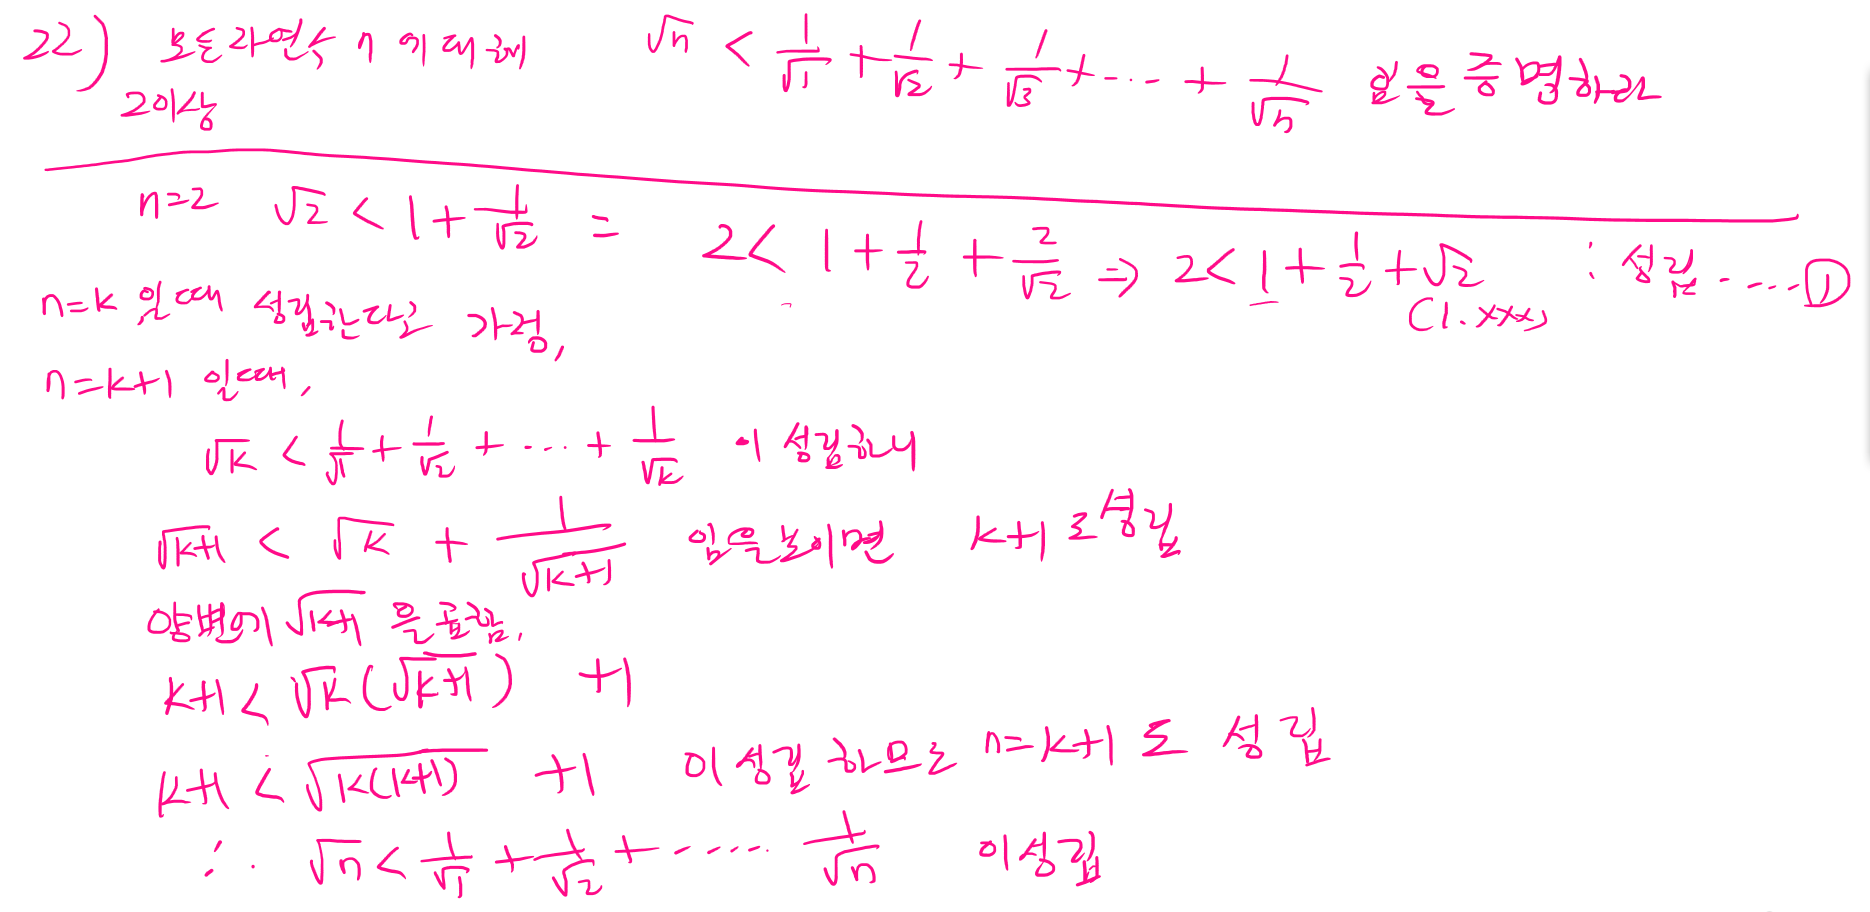 22) 모든 자연수 n 에 대해 √n < 1/√1 + 1/√2 + 1/√3 + ... + 1/√n 임을 증명하라
2이상
n=2 √2 < 1 + 1/√2 = 2 < 1 + 1/2 + 2/√2 ⇒ 2 < 1 + 1/2 + √2 : 성립 ..... ①
(1.xxx)
n=k 일때 성립한다고 가정,
n=k+1 일때,
√k < 1/√1 + 1/√2 + ... + 1/√k 이 성립하니
√k+1 < √k + 1/√k+1 임을 보이면 k+1 도 성립
양변에 √k+1 을 곱함,
k+1 < √k (√k+1) +1
k+1 < √k(k+1) +1 이 성립 하므로 n=k+1 도 성립
∴ √n < 1/√1 + 1/√2 + ..... 1/√n 이 성립